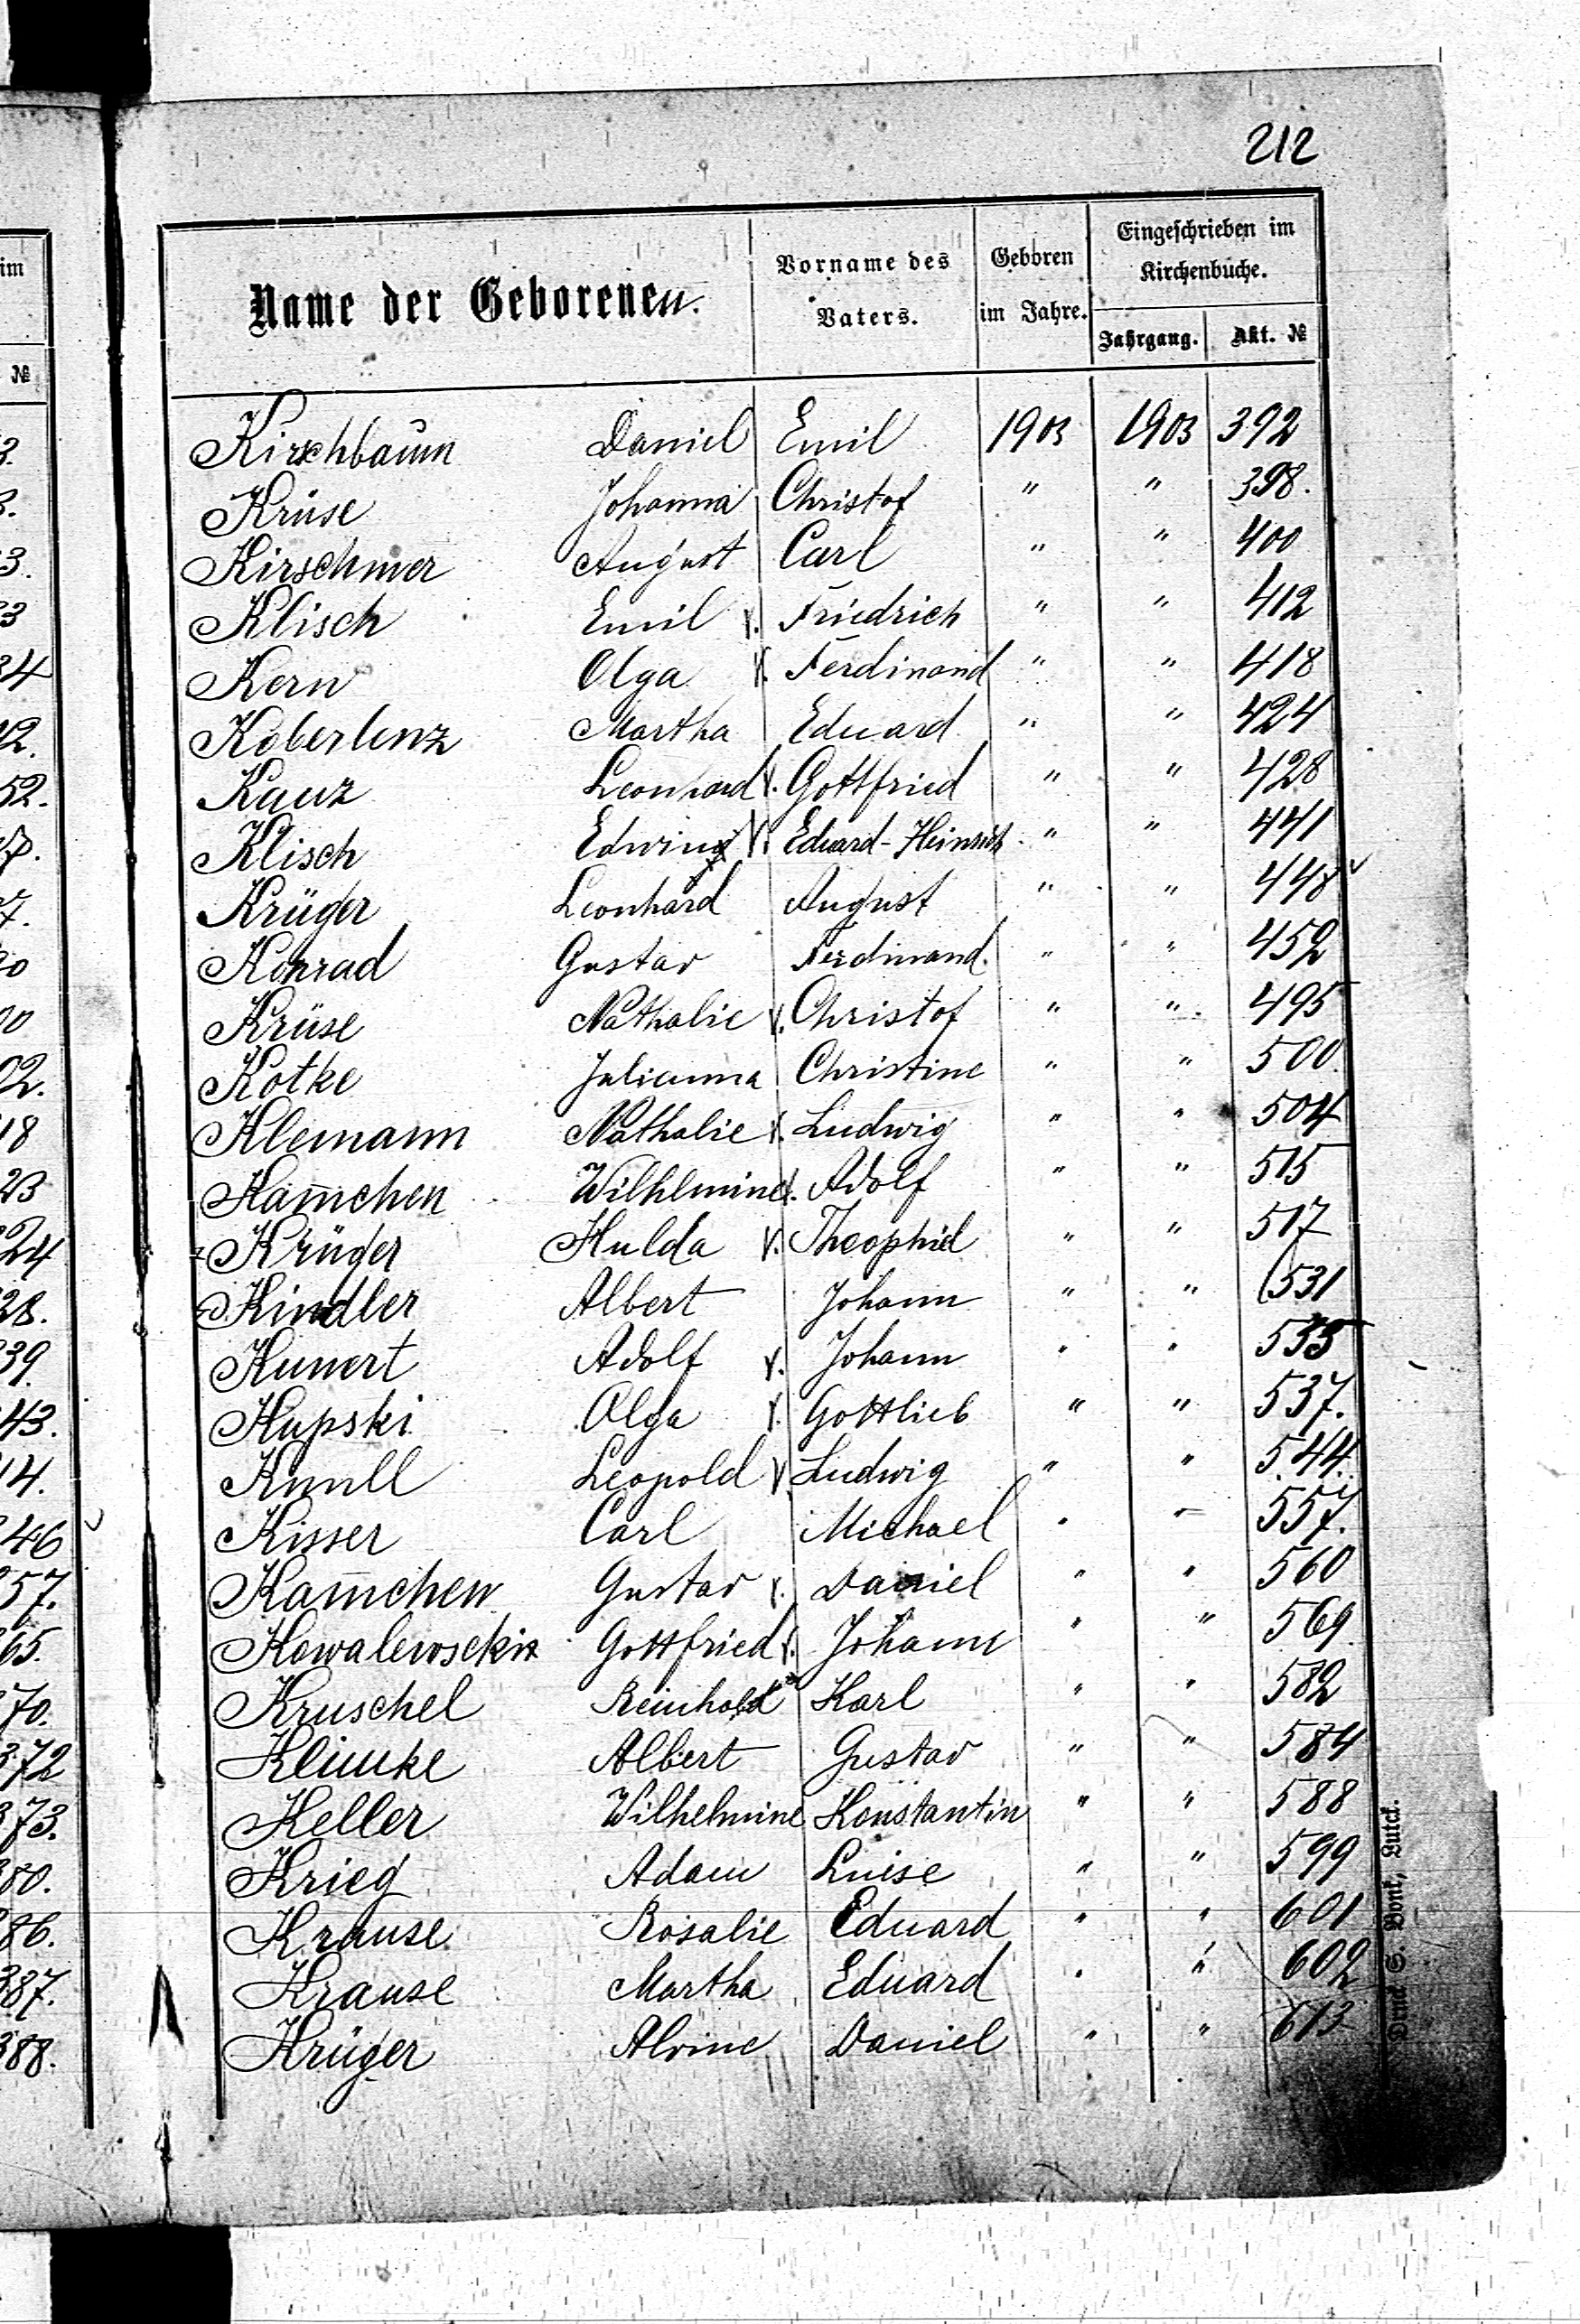 212
Name der Geborenen. Vorname des Vaters. Geboren im Jahre. Eingeschrieben im Kirchenbuche.
Jahrgang. Akt. №
Kirschbaum Daniel Emil 1903 1903 392
Krüse Johanna Christof " " 398.
Kirschner August Carl " " 400
Klisch Emil Friedrich " " 412
Kern Olga Ferdinand " " 418
Koberlenz Martha Eduard " " 424
Kauz Leonhard Gottfried " " 428
Klisch Edwin Eduard-Heinrich " " 441
Krüger Leonhard August " " 448
Konrad Gustav Ferdinand. " " 452
Krüse Nathalie Christof " " 495
Kotke Julianna Christine " " 500.
Klemann Nathalie Ludwig " " 504
Kam̄chen Wilhlmine Adolf " " 515
Krüger Hulda Theophiel " " 517
Kindler Albert Johann " " 531
Kunert Adolf Johann " " 535
Kupski Olga Gottlieb " " 537.
Knull Leopold Ludwig " " 544.
Kisser Carl Michael " " 557.
Kam̄chen Gustav Daniel " " 560
Kowalewscki Gottfried Johann " " 569
Kruschel Reinhold Karl " " 582
Klimke Albert Gustav " " 584
Keller Wilhelmine Konstantin " " 588
Krieg Adam Luise " " 599
Krause Rosalie Eduard " " 601
Krause Martha Eduard " " 602
Krüger Alvine Daniel " " 613
Druck S. Bonk, Lutck.
im
№
34
42.
52.
18
23
24
28.
39.
43.
46
57.
65.
70.
372
373.
80.
86.
387.
388.